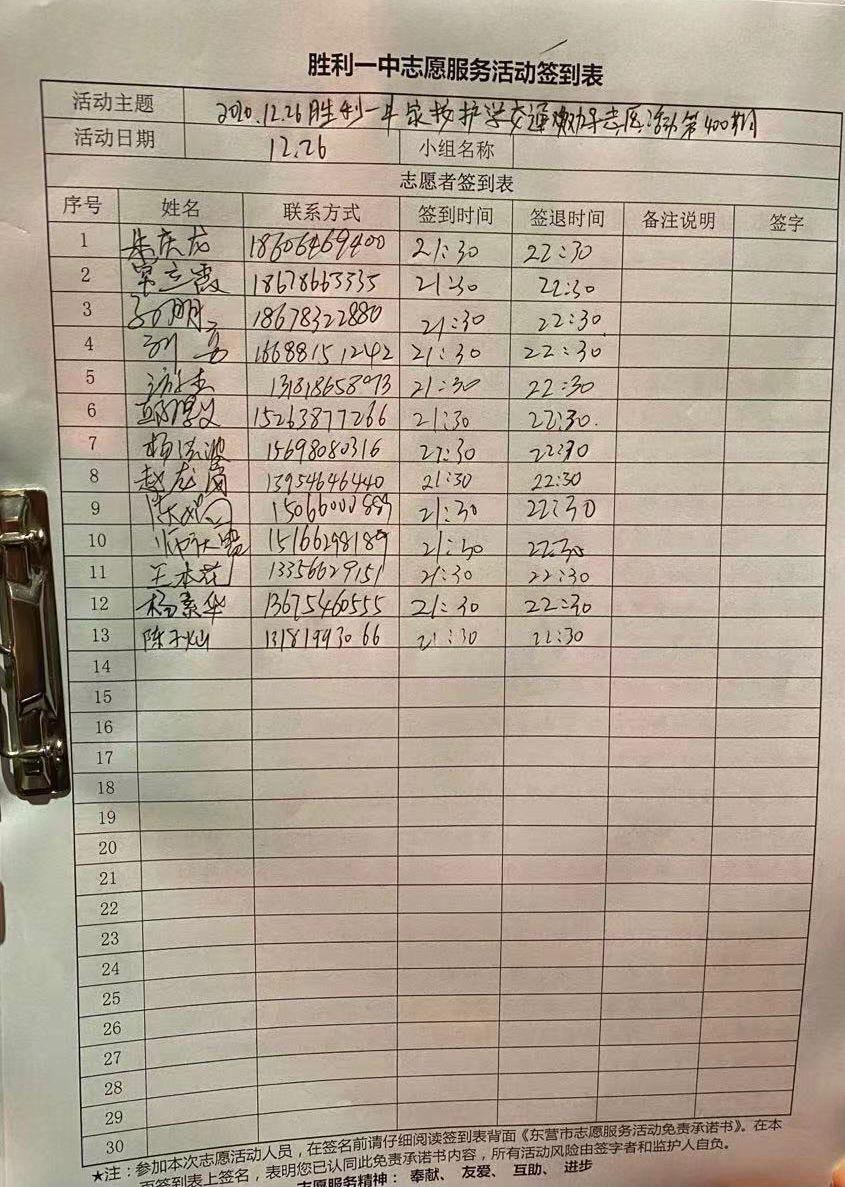 胜利一中志愿服务活动签到表
活动主题 2020.12.26胜利一中家校护学交通劝导志愿活动第400期
活动日期 12.26 小组名称
志愿者签到表
序号 姓名 联系方式 签到时间 签退时间 备注说明 签字
1 朱庆龙 18606469400 21:30 22:30
2 立霞 18678665535 21:30 22:30
3 18678322880 21:30 22:30
4 刘 16688151242 21:30 22:30
5 131818658073 21:30 22:30
6 15263877266 21:30 22:30.
7 杨 波 15698080316 22:30
8 赵龙 13954646440 21:30 22:30
9 陈 15066000889 21:30 22:30
10 师 15166298189 21:30 22:30
11 王本花 13356629151 21:30 22:30
12 杨素华 13675460555 21:30 22:30
13 陈子灿 13181993066 21:30 22:30
14
15
16
17
18
19
20
21
22
23
24
25
26
27
28
29
30
★注：参加本次志愿活动人员，在签名前请仔细阅读签到表背面《东营市志愿服务活动免责承诺书》。在本
页签到表上签名，表明您已认同此免责承诺书内容，所有活动风险由签字者和监护人自负。
志愿服务精神：奉献、友爱、互助、进步